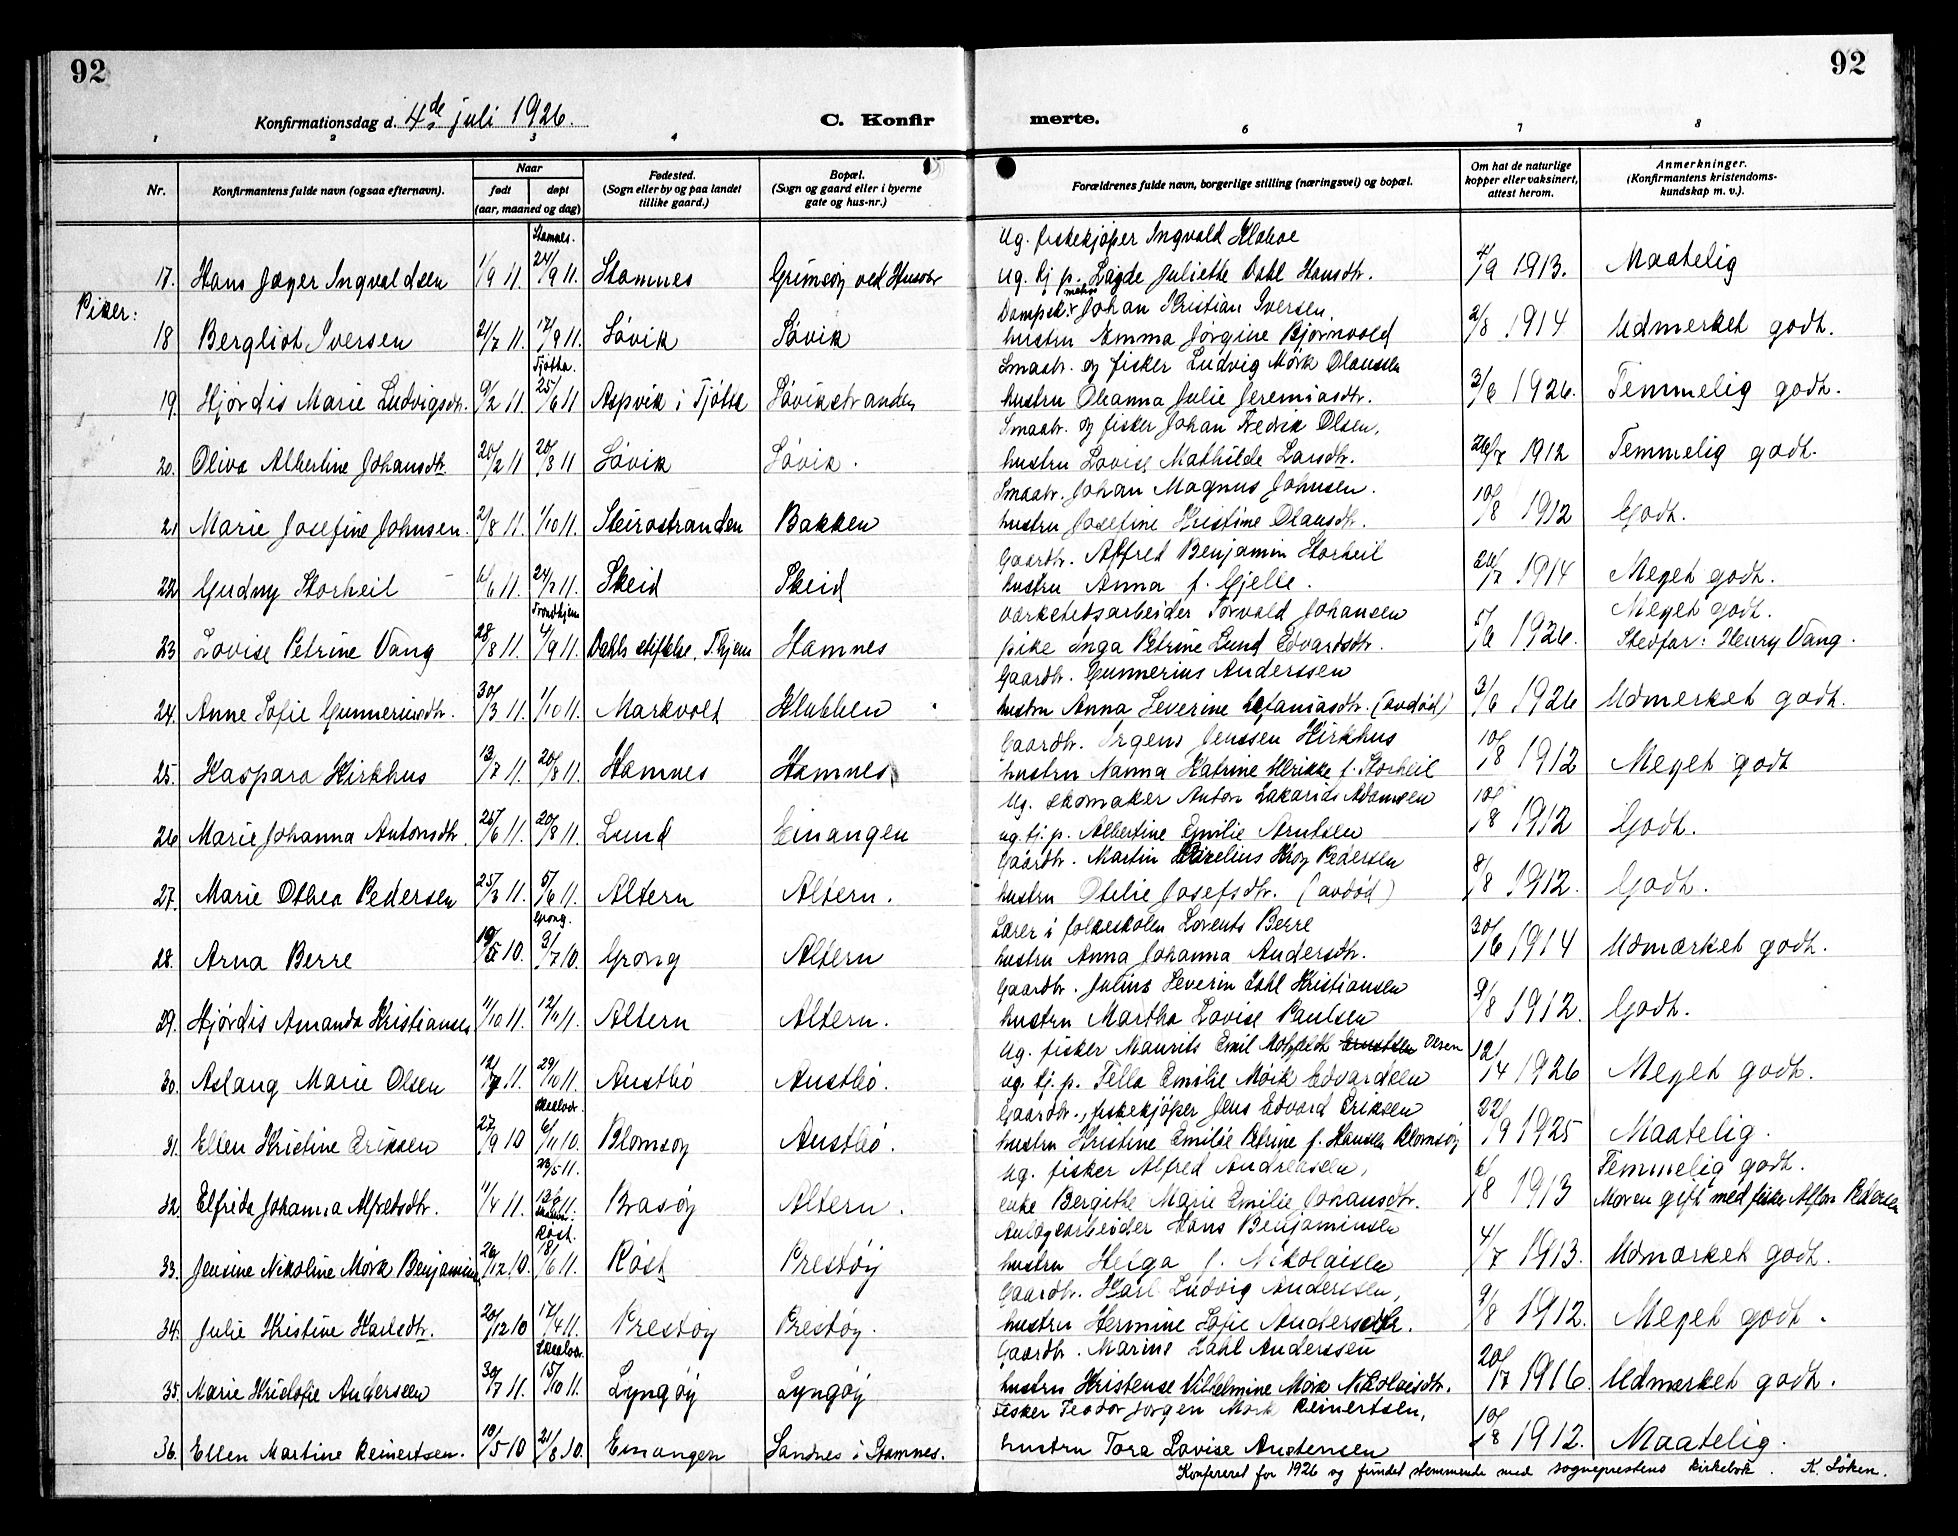 92
92
Konfirmationsdag d. 4de juli 1926.
C. Konfirmerte.
1 2 3 4 6 7 8
Nr.
Konfirmantens fulde navn (ogsaa efternavn).
Naar
født
døpt
(aar, maaned og dag)
Fødested.
(Sogn eller by og paa landet
tillike gaard.)
Bopæl.
(Sogn og gaard eller i byerne
gate og hus-nr.)
Forældrenes fulde navn, borgerlige stilling (næringsvei) og bopæl.
Om hat de naturlige
kopper eller vaksinert,
attest herom.
Anmerkninger.
(Konfirmantens kristendoms-
kundskap m. v.).
Stamnes. Ug. fiskekjøper Ingvald Klaboe
17. Hans Jæger Ingvaldsen 1/9 11. 24/9 11. Stamnes Grimsøy ved Husvær Ug. tj. p. Lagde Juliette Dahl Hansdtr. 4/9 1913. Maatelig
Piker:
Johan Kristian Iversen.
18 Bergliot Iversen 21/7 11. 17/9 11. Søvik Søvik hustru Emma Jørgine Bjørnvold 2/8 1914 Udmerket godt.
Tjøtta. Smaabr. og fisker Ludvig Mørk Olaussen
19. Hjørdis Marie Ludvigsdtr. 9/2 11. 25/6 11 Aspvik i Tjøtta Søvikstranden hustru Ohanna Julie Jeremiasdtr. 3/6 1926. Temmelig godt.
Smaabr. og fisker Johan Fredrik Olsen,
20. Oliva Albertine Johansdtr. 25/2 11 20/8 11 Søvik Søvik. hustru Lovise Mathilde Larsdtr. 26/7 1912 Temmelig godt.
Smaabr. Johan Magnus Johnsen.
21 Marie Josefine Johnsen. 2/8 11. 1/10 11. Steirostranden Bakken hustru Josefine Kristine Olausdtr. 10/8 1912 Godt.
Gaardbr. Alfred Benjamin Storheil
22 Gudny Storheil 6/1 11. 24/2 11. Skeid Skeid hustru Anna f. Gjelle. 26/7 1914 Meget godt.
Trondhjem Verkstedsarbeider Torvald Johansen Meget godt.
23 Lovise Petrine Vang 28/8 11. 4/9 11. Dahls stiftelse, T.hjem Hamnes pike Inga Petrine Lund Edvardsdtr. 5/6 1926. Stedfar: Henry Vang.
Gaardbr. Gunnerius Anderssen
24. Anne Sofie Gunneriusdtr. 30/3 11. 1/10 11. Markvoll Klubben hustru Anna Severine Zefaniasdtr. (avdød) 3/6 1926 Udmerket godt.
Gaardbr. Irgens Jenssen Kirkhus
25. Kaspara Kirkhus 13/7 11. 20/8 11. Hamnes Hamnes hustru Nanna Katrine Ulrikke f. Storheil 10/8 1912 Meget godt
Ug. skomaker Anton Zakarias Adamsen
26 Marie Johanna Antonsdtr. 25/6 11. 20/8 11. Lund Einangen ug. tj. p. Albertine Emilie Arntsen 10/8 1912 Godt.
Gaardbr. Martin Krog Pedersen
27. Marie Othea Pedersen 25/3 11. 5/6 11. Altern Altern. hustru Otelie Josefsdtr. (avdød) 8/8 1912. Godt.
Grong. Lærer i folkeskolen Lorents Berre
28. Arna Berre 19/5 10. 3/7 10. Grong Altern hustru Anna Johanna Andersdtr. 30/6 1914 Udmærket godt.
Gaardbr. Julius Severin Zahl Kristiansen
29. Hjørdis Amanda Kristiansen 1/10 11. 12/11 11. Altern Altern. hustru Martha Lovise Paulsen 9/8 1912. Godt.
Ug. fisker Maurits Emil Ernstsen Olsen
30. Aslaug Marie Olsen 12/7 11. 29/10 11. Austbø Austbø. ug. tj. p. Tella Emilie Mørk Edvardsen 12/4 1926 Meget godt.
Gaardbr., fiskekjøper Jens Edvard Eriksen
31. Ellen Kristine Eriksen 27/9 10 6/11 10. Blomsøy Austbø. hustru Kristine Emilie Petrine f. Hansen Blomsøy 22/9 1925 Maatelig.
23/5 11. Ug. fisker Alfred Andreassen, Temmelig godt.
32. Elfrida Johanna Alfredsdtr. 1/4 11. Brasøy Altern. enke Bergitte Marie Emilie Johansdtr. 6/8 1913 Moren gift med fisker Alfon Pedersen
Røst. Anlægsarbeider Hans Benjaminsen
33. Jensine Nikoline Mørk Benjaminsen 26/12 10. 18/6 11. Røst Prestøy hustru Helga f. Nikolaisen 4/7 1913. Udmærket godt.
Gaardbr. Karl Ludvig Anderssen,
34. Julie Kristine Karlsdtr. 20/12 10 17/4 11. Prestøy Prestøy. hustru Hermine Sofie Andersdtr. 9/8 1912. Meget godt.
Gaardbr. Marius Zahl Anderssen
35. Marie Kristofie Anderssen 30/7 11. 15/10 11. Lyngøy Lyngøy hustru Kristense Vilhelmine Mørk Nikolaisdtr. 20/7 1916. Udmærket godt.
Fisker Teodor Jørgen Mørk Reinertsen,
36. Ellen Martine Reinertsen. 10/5 10 21/8 10. Einangen Sandnes i Stamnes. hustru Tora Lovise Austensen 10/8 1912. Maatelig.
Konfereret for 1926 og fundet stemmende med sogneprestens kirkebok. K. Løken.